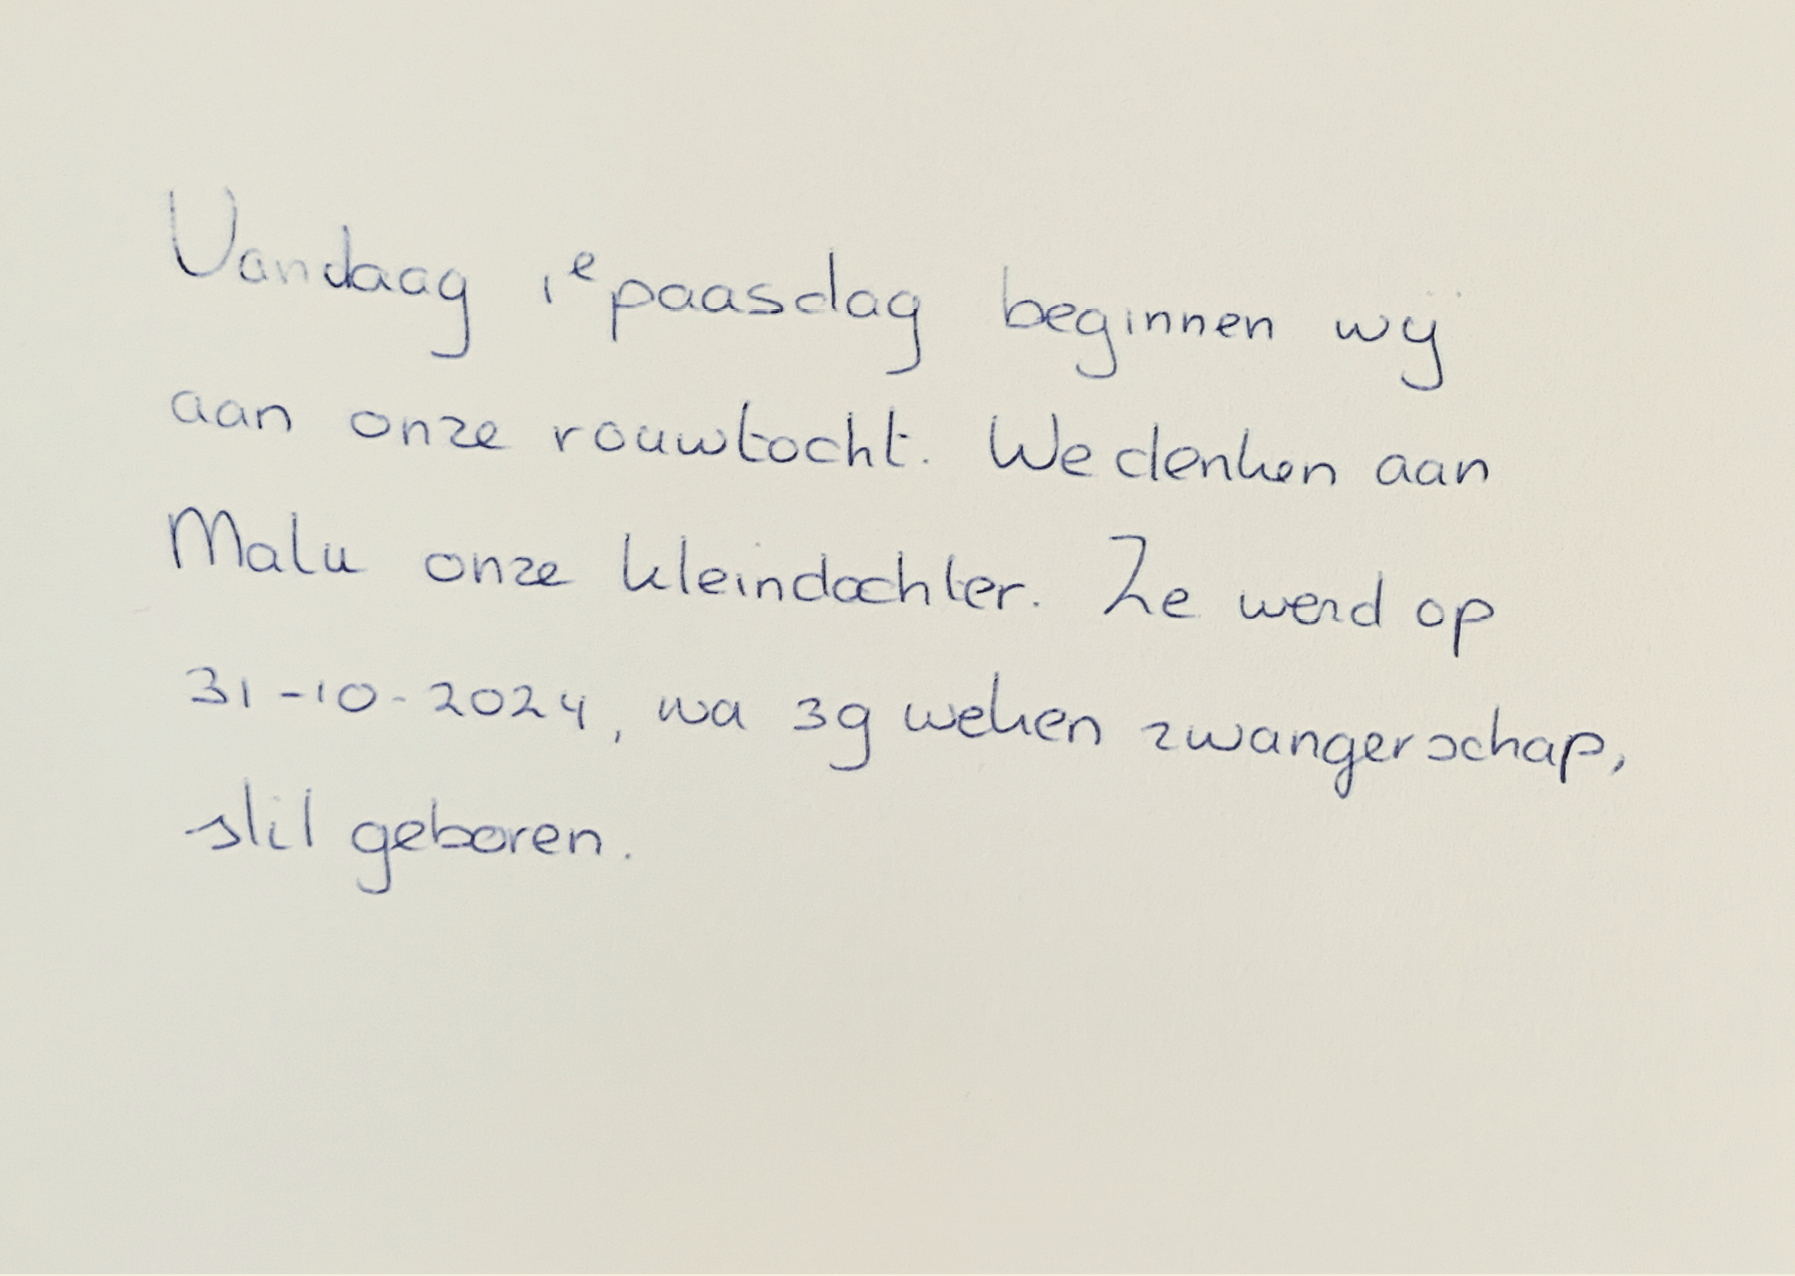 Vandaag 1e paasdag beginnen wij
aan onze rouwtocht. We denken aan
Malu onze kleindochter. Ze werd op
31-10-2024, na 39 weken zwangerschap,
stil geboren.